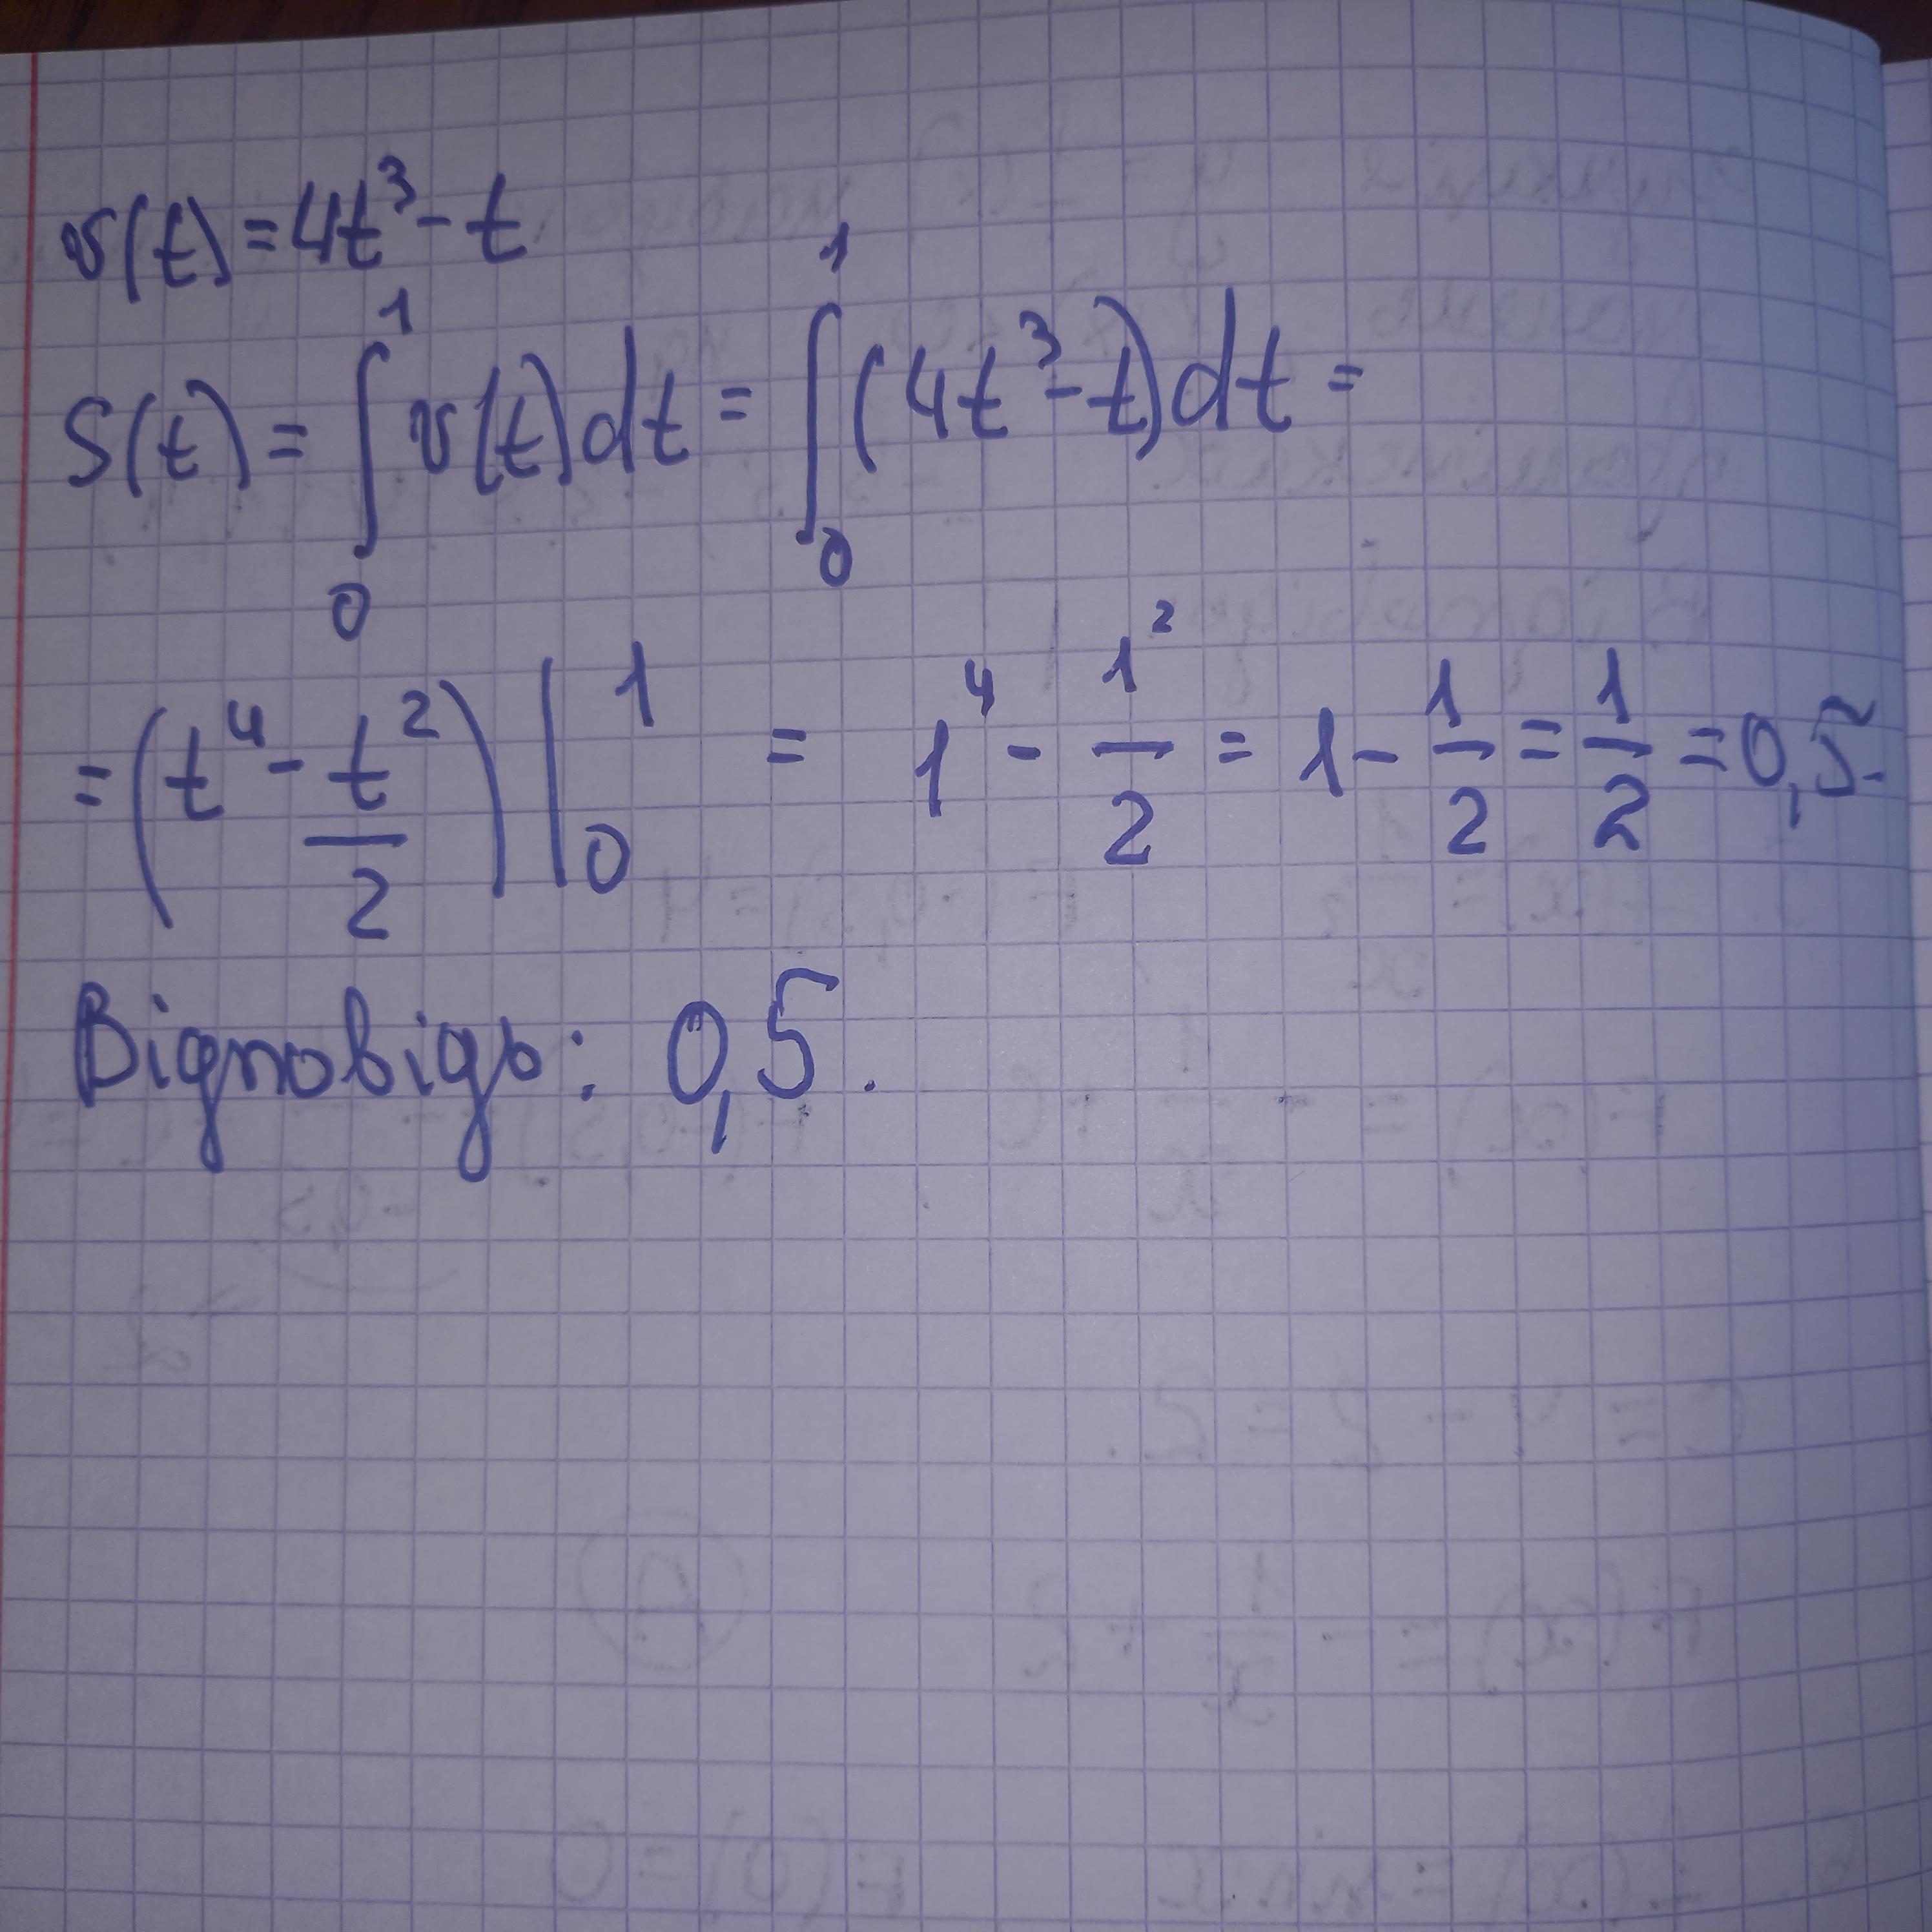 v(t) = 4t³ - t
S(t) = ∫₀¹ v(t)dt = ∫₀¹ (4t³ - t)dt =
= (t⁴ - t²/2) |₀¹ = 1⁴ - 1²/2 = 1 - 1/2 = 1/2 = 0,5.
Відповідь: 0,5.